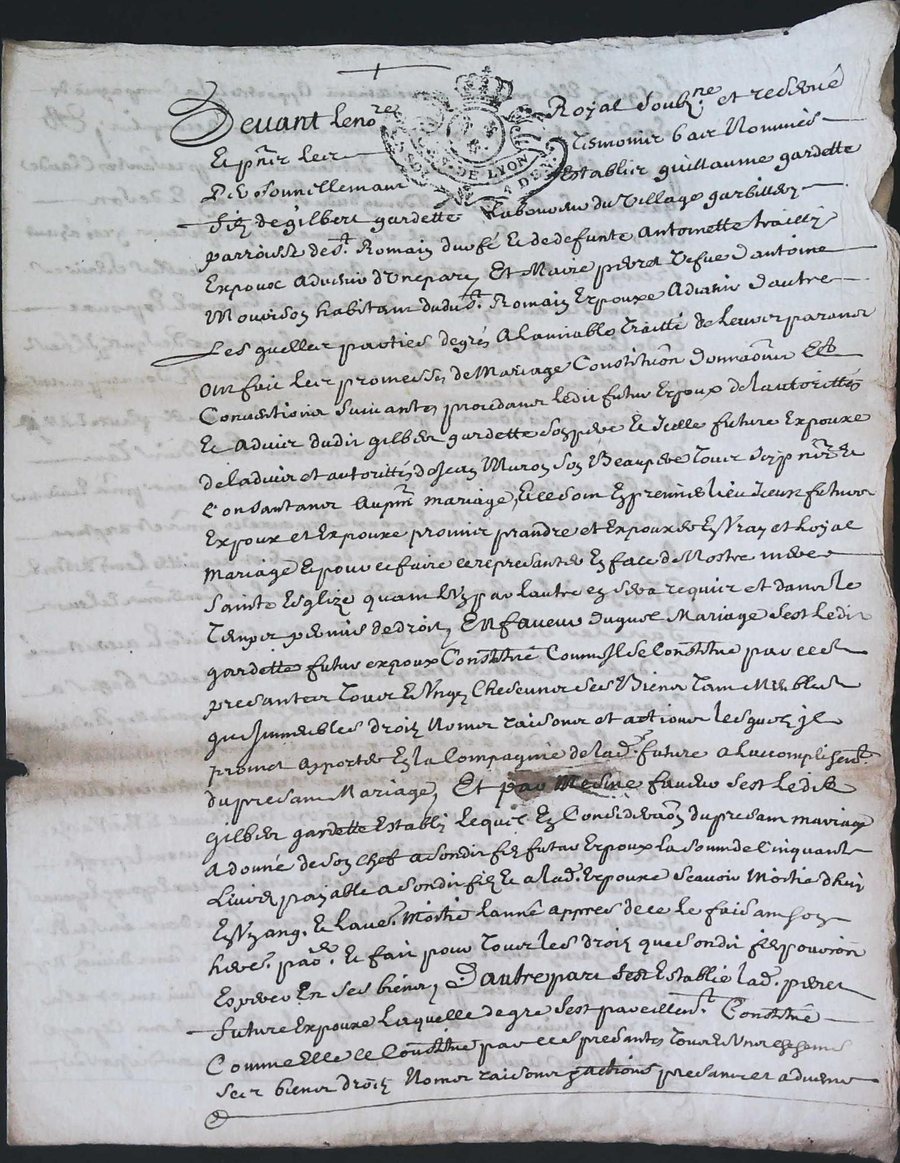 Devant le no.re Royal soub.ne et reservé
Et p.nts les tesmoins bas Nommés
Personnellement Establis guillaume gardette
fils de gilbert gardette Laboureur du village garbillery
parroisse de S.t Romain Durfé et de defunte Antoinette
Expoux Advenir d'Unepart, Et Marie pieret vefve d'antoine
Mourison habitam dudit S.t Romain Expouxe Advenir d'autre
Les quelles parties degrés A lamiable traitté de leurs parans
Ont fait les promesses de Mariage Constitu.on donna.on Et
Conventions suivantes procedans ledit futur Expoux de lautoritté
Et Advis dudit gilbert gardette son pere Et Icelle future Expouxe
de ladvis et autoritté de Jean Muron son Beaupere tous deux p.nts Et
Consantans Au p.nt mariage, C'est Ensemble En premier lieu Iceux futurs
Expoux et Expouxe promis prandre et Expouxer En Vray et Loyal
Mariage Et pour ce faire se represanter En face de Nostre mere
Sainte Esglize quam L'un par lautre en sera requis et dans le
temps permis de droit, En faveur duquel Mariage s'est ledit
gardette futur expoux Constitué Comm Il se Constitue par ces
presantes tous Et Ungs Chescuns ses Biens tam Meubles
que Immeubles droits Noms raisons et actions lesquels Il
promet apporter En la Compagnie de lad. future a laccomplissem.t
du presam Mariage, Et par Mesme faveur s'est ledit
Gilbert gardette Establi lequel En Considera.on du presam mariage
A donné de son Chef a sondit fils futur Expoux la somme de Cinquante
Livres payable a sondit fils Et a lad. Expouxe scavoir Moitié d'huy
En Un an, Et lau.e Moitié lannée appres de ce le faisam son
heri. par. Et fait pour tous les droits que sondit fils pouvroit
Esperer En ses biens, D'autrepart s'est Establie lad. pieret
future Expouxe Laquelle degre s'est pareillem.t Constitué
Comme Elle se Constitue par ces presantes tous Et Ungs chescuns
Ses biens droits Noms raisons & actions presans et advenir